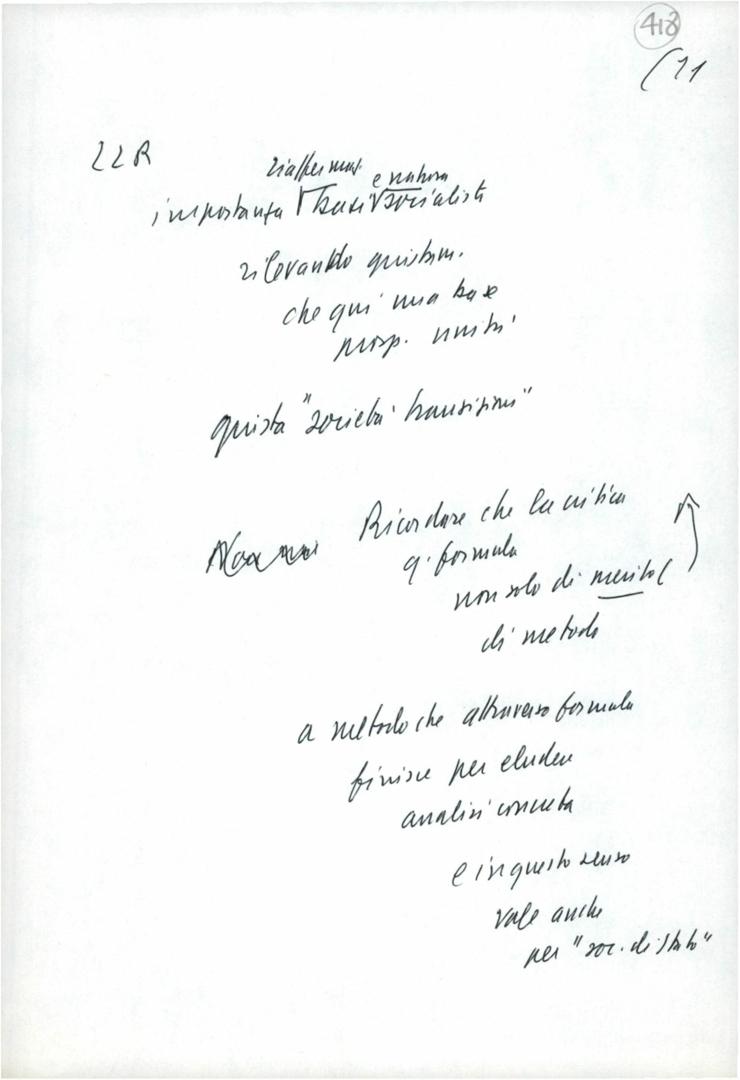 418
(11
LLR
riafferma.
e natura
importanza basi socialisti
rilevando
che qui una base
prosp. unità
questa "società transizione"
Ricordare che la critica
q. formula
non solo di merito (
di metodo
a metodo che attraverso formula
finisce per eludere
analisi concreta
e in questo senso
vale anche
per "soc. di Stato"